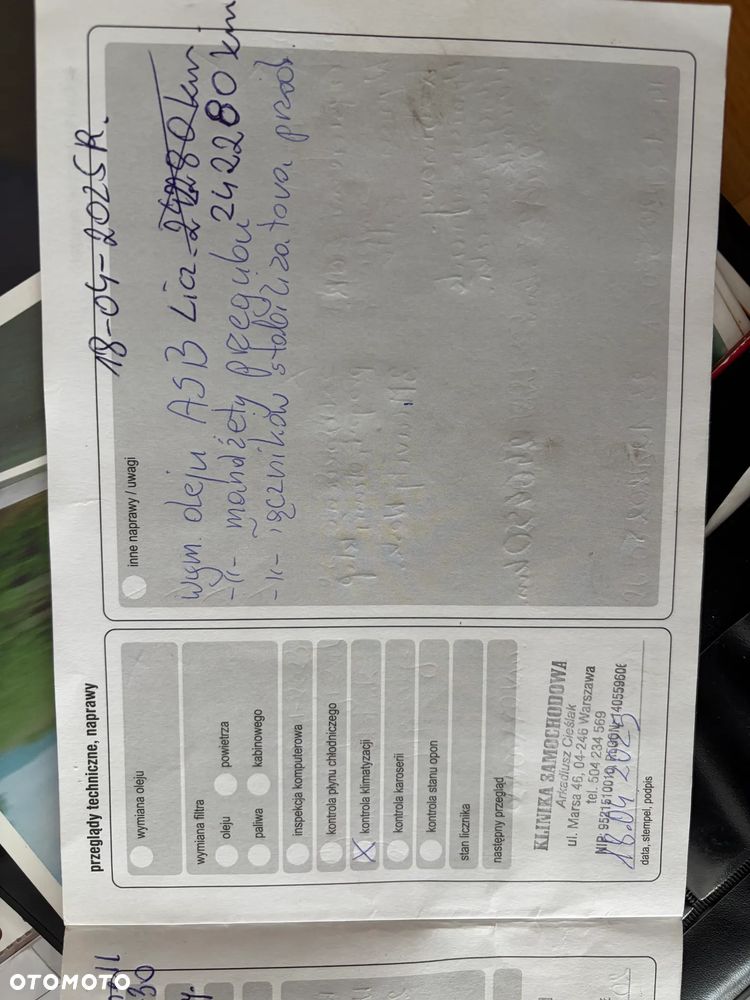 przeglądy techniczne, naprawy
wymiana oleju
wymiana filtra
oleju
powietrza
paliwa
kabinowego
inspekcja komputerowa
kontrola płynu chłodniczego
kontrola klimatyzacji
kontrola karoserii
kontrola stanu opon
stan licznika
następny przegląd
KLINIKA SAMOCHODOWA
Arkadiusz Cieślak
ul. Marsa 46, 04-246 Warszawa
tel. 504 234 569
18.04 2025
data, stempel, podpis
18-04-2025 R.
inne naprawy / uwagi
wym. oleju ASB
242280 km
-"- mandżety przegubu
-"- łączników stabilizatora przód.
30
OTOMOTO